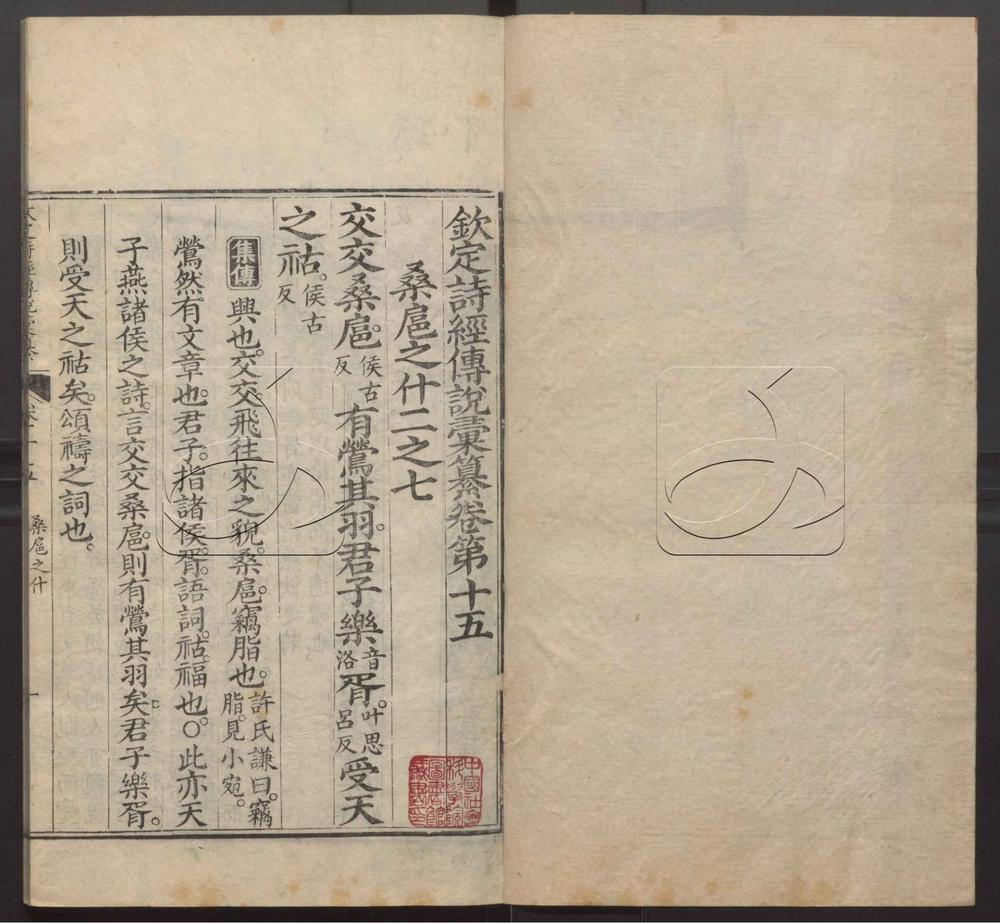 欽定詩經傳說彙纂卷第十五
桑扈之什二之七
交交桑扈侯古反有鶯其羽君子樂音洛胥叶思呂反受天
之祜侯古反
集傳興也。交交。飛往來之貌。桑扈。竊脂也。許氏謙曰。竊脂。見小宛。
鶯然有文章也。君子。指諸侯。胥。語詞。祜。福也。○此亦天
子燕諸侯之詩。言交交桑扈。則有鶯其羽矣。君子樂胥。
則受天之祜矣。頌禱之詞也。
桑扈之什
一
中國社會科學院圖書館藏書印